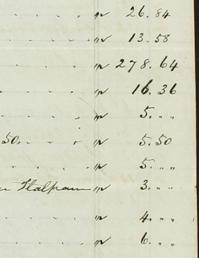 " 26.84
" 13.58
" 278.64
" 16.36
" 5. " "
50. " 5.50
" 5. " "
Halpain " 3. " "
" 4. " "
" 6. " "